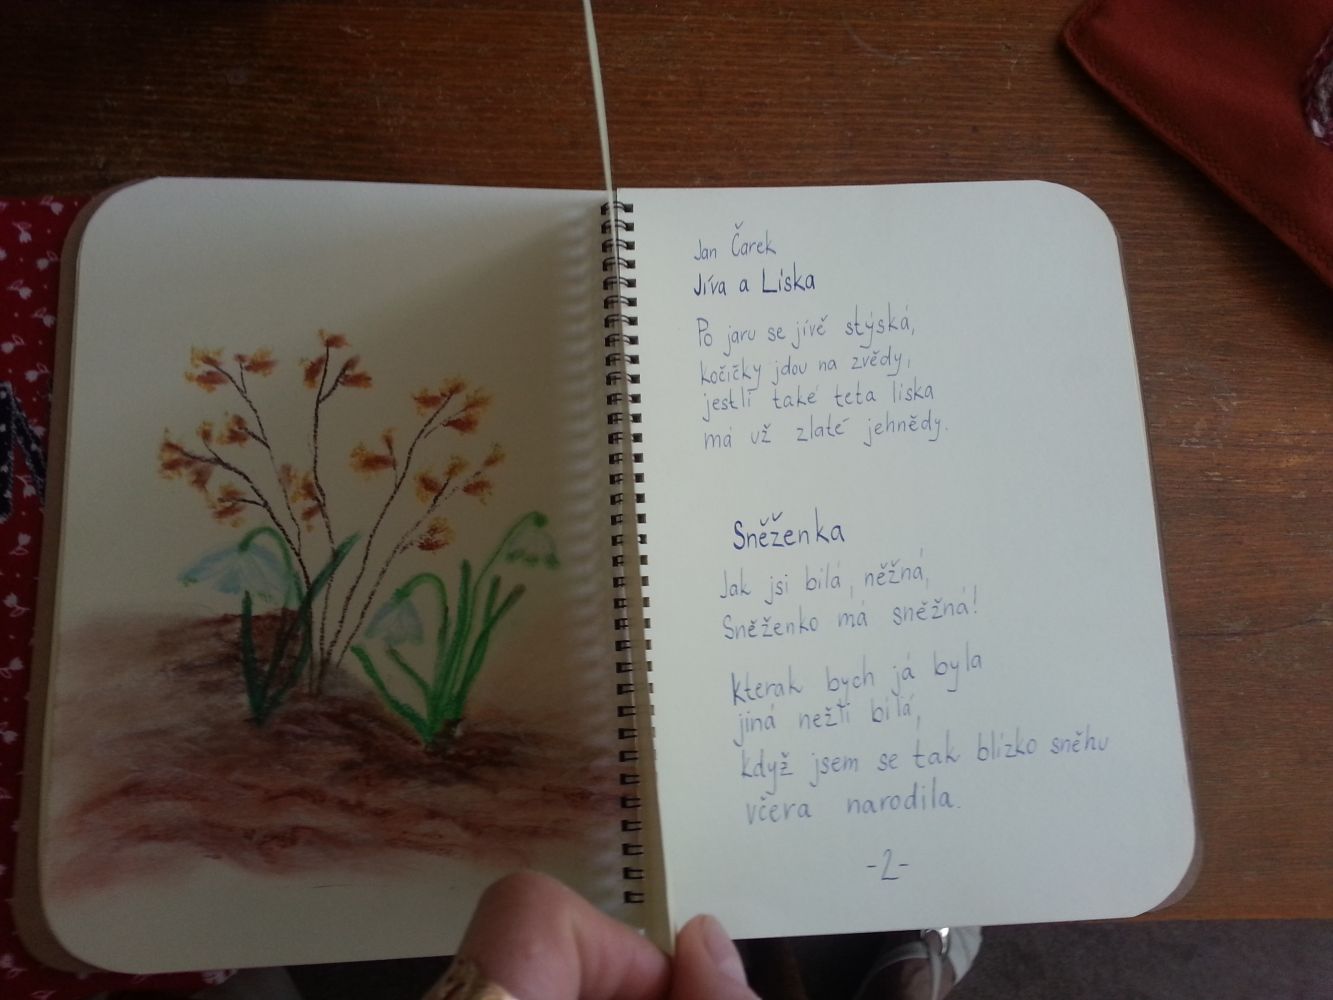 Jan Čarek
Jíva a Líska
Po jaru se jívě stýská,
kočičky jdou na zvědy,
jestli také teta líska
má už zlaté jehnědy.
Sněženka
Jak jsi bílá, něžná,
Sněženko má sněžná!
Kterak bych já byla
jiná nežli bílá,
když jsem se tak blízko sněhu
včera narodila.
-2-